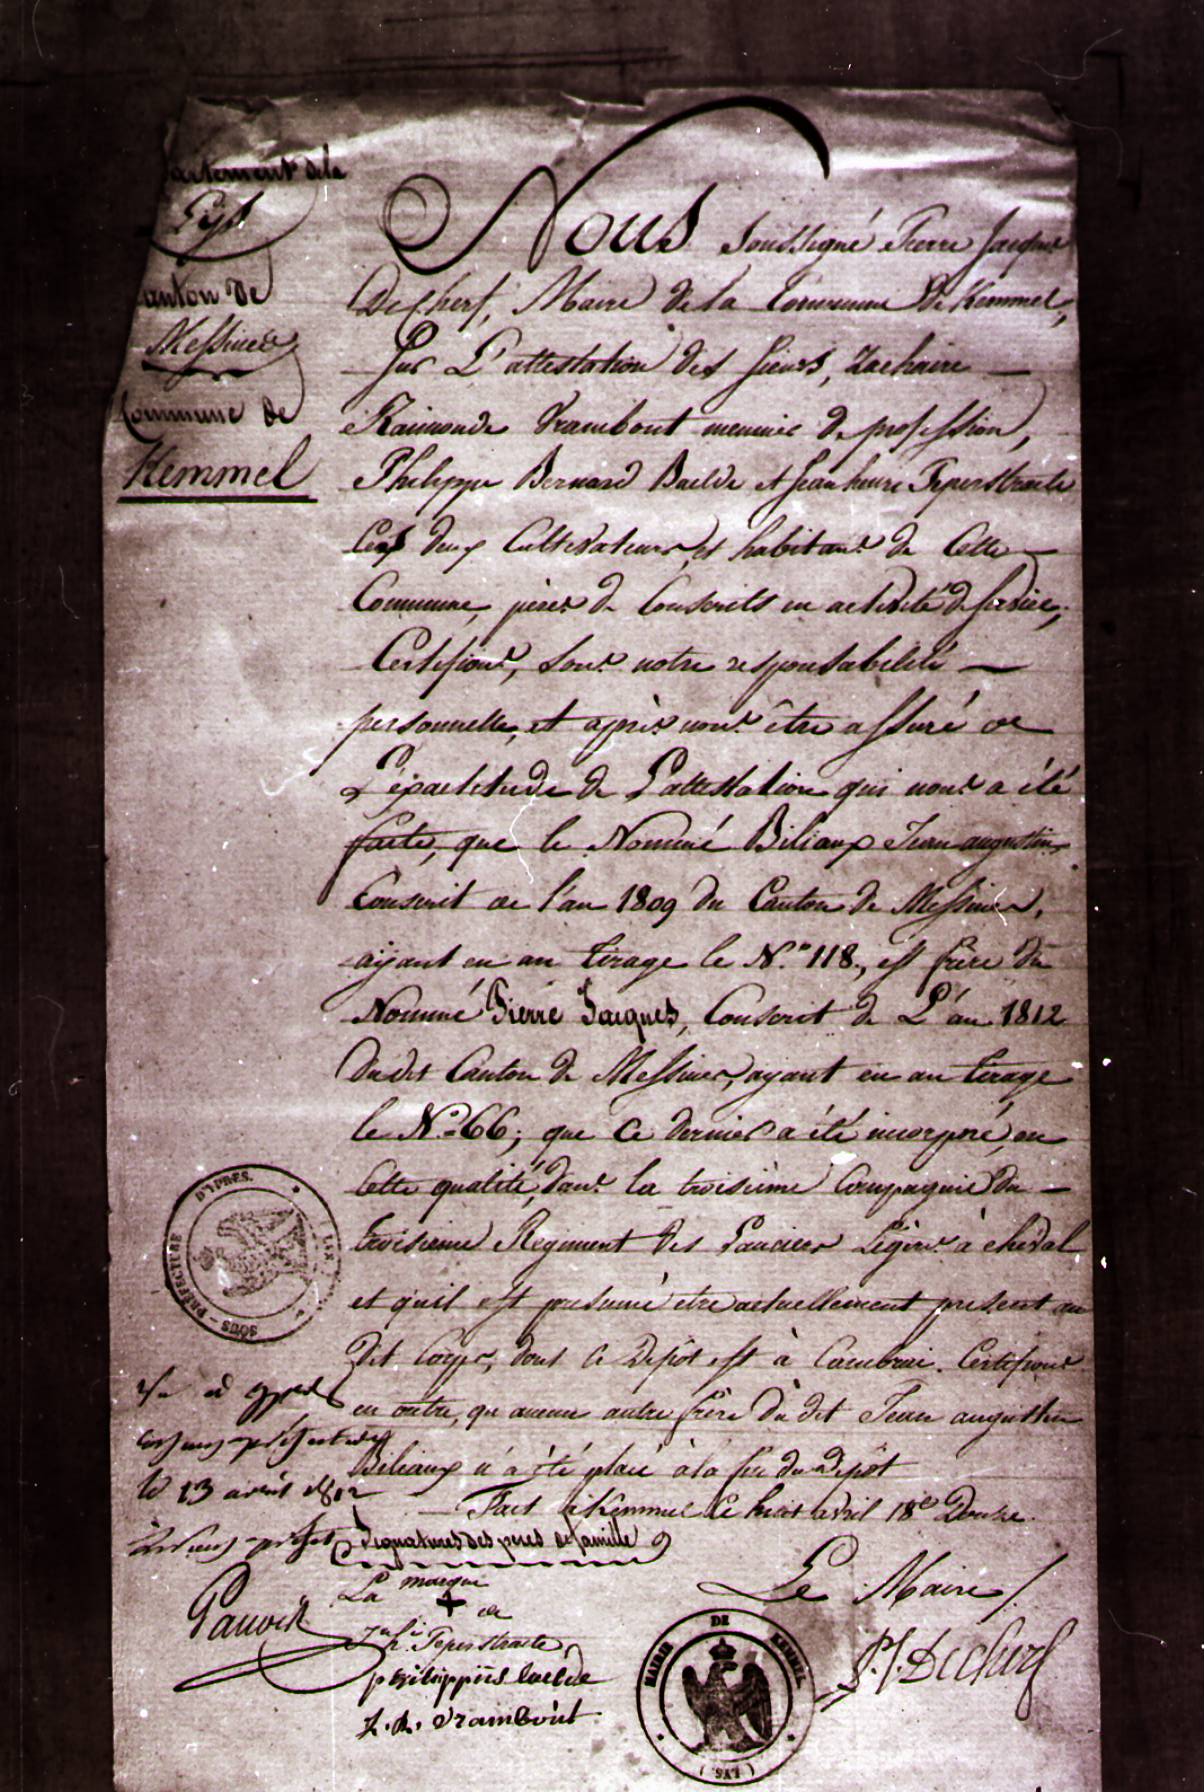 artement de la
Lys
anton de
Messines
Commune de
Kemmel
Nous Soussigné Pierre Jacques
De Cherf, Maire de la Commune de Kemmel,
Sur L'attestation des Sieurs, Zachaire
Raimonde Vrambout meunier de profession,
Philippe Bernard Baelde et Jean henri Teperstraete
Ces deux Cultivateurs et habitans de Cette
Commune, pères de Conscrits en activité de service,
Certifions, Sous notre responsabilité
personnelle, et après nous être assuré de
L'éxactitude de L'attestation qui nous a été
faite, que le Nommé Biliaux Jean augustin
Conscrit de l'an 1809 du Canton de Messines,
ayant eu au tirage le N.° 118., est frère du
Nommé Pierre Jacques, Conscrit de L'an 1812
dudit Canton de Messines, ayant eu au tirage
le N.° 66; que ce dernier a été incorporé, en
Cette qualité, dans la troisième Compagnie du
troisieme Régiment des Lanciers Légers à cheval
et qu'il est présumé etre actuellement présent au
dit Corps, dont le Dépôt est à Cambrai. Certifions
en outre, qu'aucun autre frère du dit Jean augustin
Biliaux n'a été placé à la fin du dépôt
Fait à Kemmel Ce huit avril 18c Douze.
SOUS-PRÉFECTURE D'YPRES. (LYS)
Vu à ypres
le 13 avril 1812
Signatures des peres de famille
La marque
+ de
J h.i Teperstraete
philippus baelde
Z. R. vrambout
Le Maire
P. J. DeCherf
MAIRIE DE KEMMEL (LYS.)